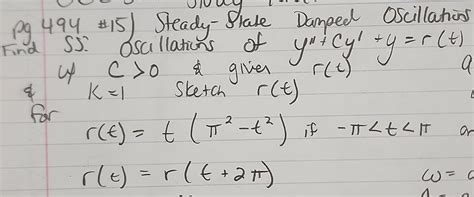 pg 494 #15) Steady-State Damped Oscillations
Find SS. Oscillations of y" + Cy' + y = r(t)
w/ C > 0 & given r(t)
& K=1 Sketch r(t)
for
r(t) = t (π² - t²) if -π < t < π
r(t) = r(t + 2π)
ω =